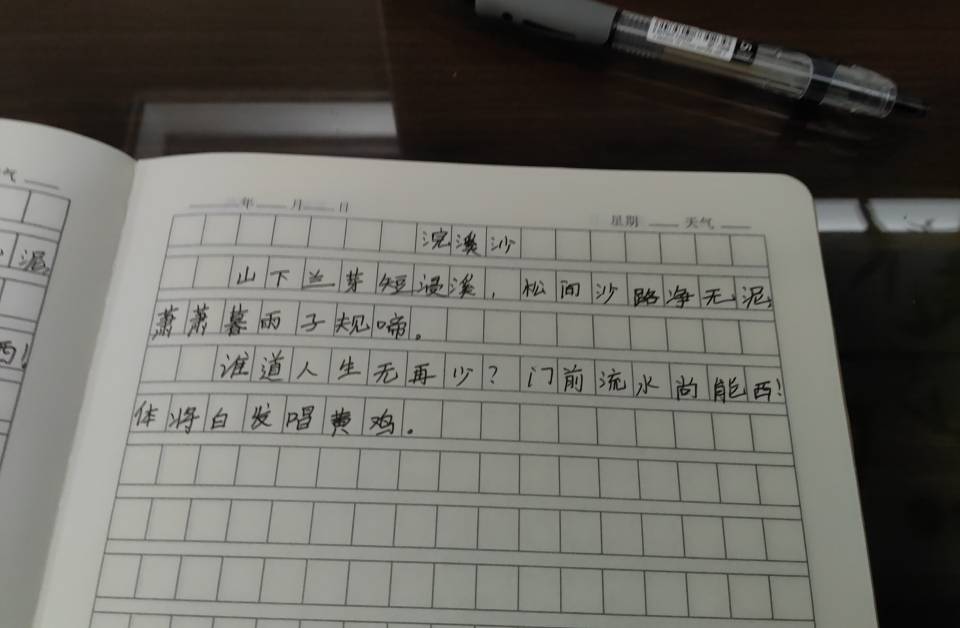 气
泥。
西！
年 月 日 星期 天气
浣溪沙
山下兰芽短浸溪，松间沙路净无泥，
萧萧暮雨子规啼。
谁道人生无再少？门前流水尚能西！
体将白发唱黄鸡。